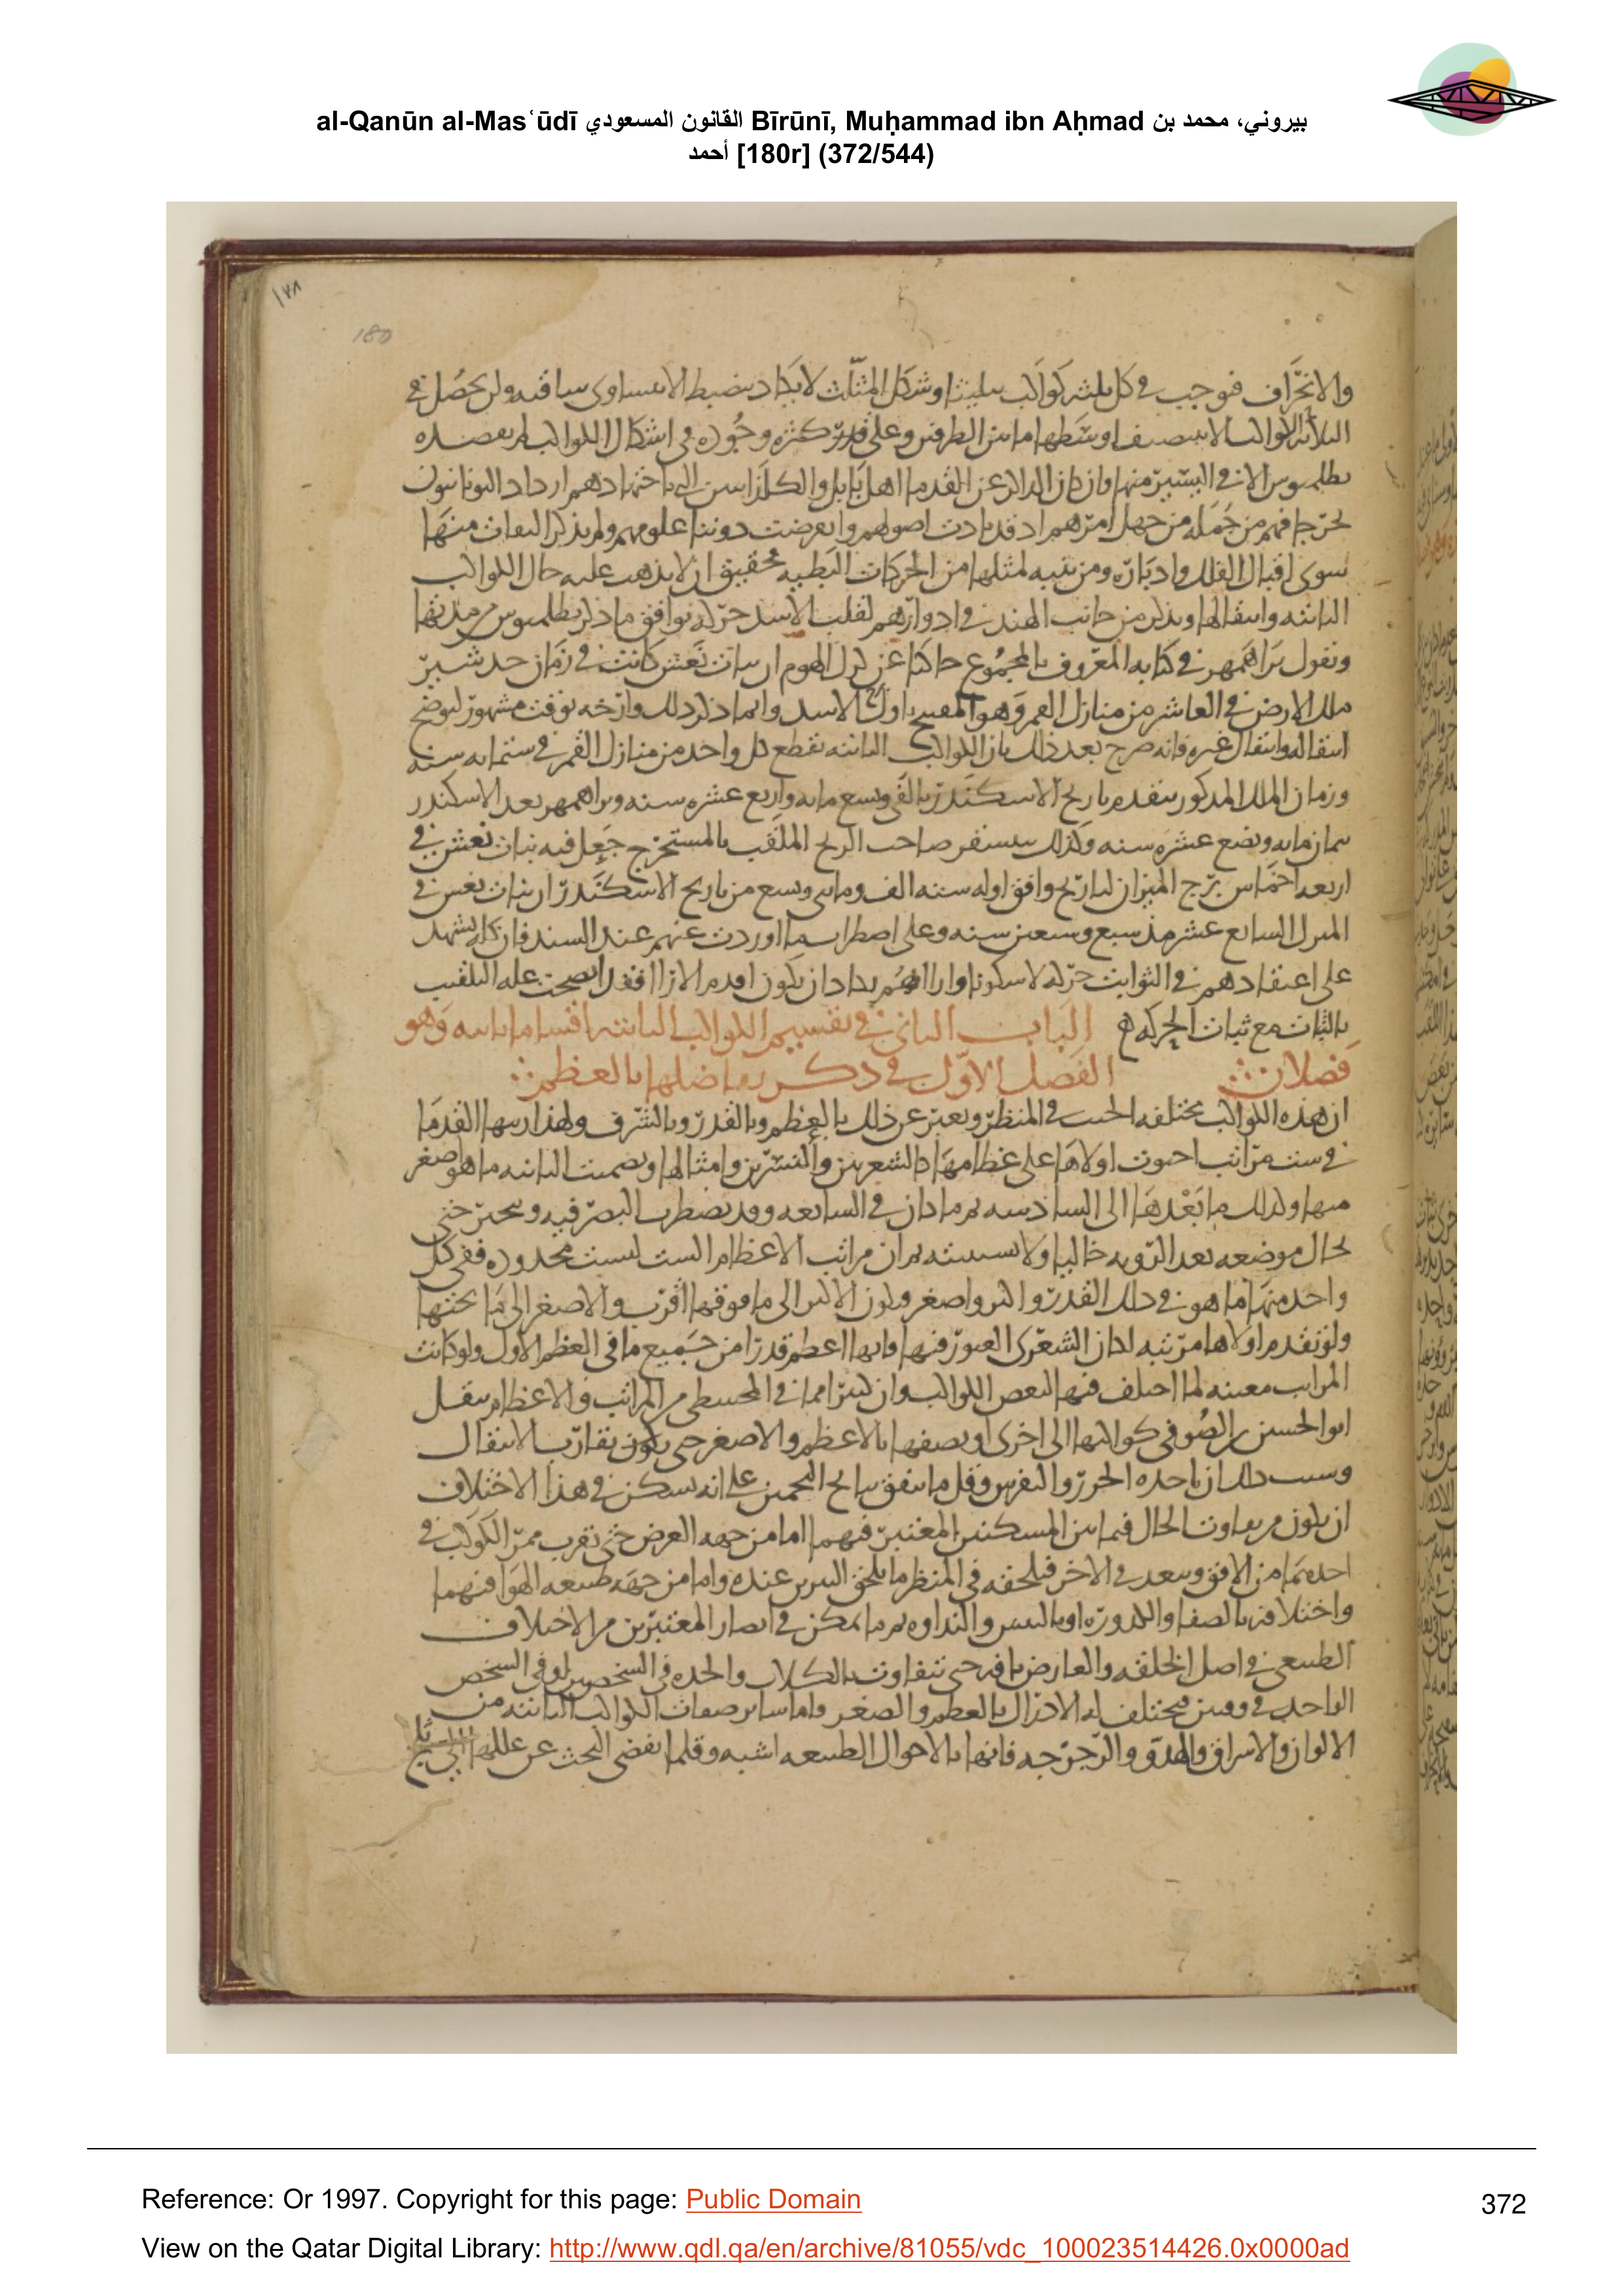 al-Qanūn al-Masʿūdī القانون المسعودي Bīrūnī, Muḥammad ibn Aḥmad بيروني، محمد بن
أحمد [180r] (372/544)
١٧٨
180
والانحراف فوجب في كل ثلثة كواكب تثليثا وشكل المثلث لا يكاد ينضبط الا بتساوى ساقيه ولن يحصل في
الثلاثة الكواكب الا بتنصيف اوسطها ما بين الطرفين وعلى قدر كثرة وجوده في اشكال الكواكب لم يقصده
بطلميوس الا في اليسير منها وان كان الدائر عن القدما اهل بابل والكلدانيين الى باجتهادهم ارداد اليونانيون
تخرجا فهم من جملة من جهل امرهم اذ قد بادت اصولهم وانقرضت دوننا علومهم ولم يذكر التفات منها
سوى اقبال الفلك وادباره ومن تنبه لمثلها من الحركات البطيه فحقيق ان لا يذهب عليه حال الكواكب
الثابته وانتقالها ويذكر من جانب الهند في ادوارهم لقلب الاسد حركه توافق ما ذكر بطلميوس من مدتها
ونقول براهمهر في كتابه المعروف بالمجموع حاكيا عن كرك المهوم ان بنات نعش كانت في زمان جدشتر
ملك الارض في العاشر من منازل القمر وهو المفتتح باول الاسد وانما ذكر ذلك وارخه بوقت مشهور ليوضح
انتقاله وانتقال غيره فانه صرح بعد ذلك بان الكواكب الثابته تقطع كل واحد من منازل القمر في ستمايه سنه
وزمان الملك المذكور يتقدم تاريخ الاسكندر بالفي وتسع مايه واربع عشره سنه وبراهمهر بعد الاسكندر
بثمان مايه وبضع عشره سنه وكذلك صاحب الزيج الملقب بالمستخرج جعل فيه بنات نعش في
اربعه اخماس برج الميزان لتاريخ وافق اوله سنه الف ومايتى وتسع من تاريخ الاسكندر ان بنات نعش في
المنزل السابع عشر مذ سبع وسبعين سنه وعلى اضطراب ما اوردت عنهم عند السند فان كله يشهد
على اعتقادهم في الثوابت حركه لا سكونا وارا يكاد ان يكون اقدم الارا فقد اتضحت عله التلقيب
بالثبات مع ثبات الحركه الباب الثاني في تقسيم الكواكب الثابته اقساما ثابته وهو
فصلان الفصل الاول في ذكر تفاضلها بالعظم
ان هذه الكواكب مختلفه الجسه في المنظر ويعبر عن ذلك بالعظم وبالقدر وبالشرف ولهذا رتبها القدما
في ست مراتب احتوت اولاها على عظامها كالشعريين والنسرين وامثالها وتضمنت الثانيه ما هو اصغر
منها وكذلك ما بعدها الى السادسه ثم ما كان في السابعه وقد يضطرب البصر فيه ويتحير حتى
يخال موضعه بعد الرويه خاليا ولا يستثبته ثم ان مراتب الاعظام الست ليست محدوده ففي كل
واحده منها ما هو في ذلك القدر واكبر واصغر ويكون الاكبر الى ما فوقها اقرب والاصغر الى ما تحتها
ولو تقدم اولاها مرتبه لكان الشعرى العبور فيها فانها اعظم قدرا من جميع ما في العظم الاول ولو كانت
المراتب معينه لما اختلف فيها لبعض الكواكب وان كثيرا مما في المجسطي من المراتب والاعظام ينقل
ابو الحسين الصوفي كواكبها الى اخرى او يصفها بالاعظم والاصغر حتى يكون تقارب الانتقال
وسبب ذلك ان ماخذه الحزر والتفرس وقل ما يتفق نتائج التخمين على انه يمكن في هذا الاختلاف
ان يكون من تفاوت الحال فيما بين المسكنين المعتبر فيهما اما من جهه العرض حتى تقرب ممر الكوكب في
احدهما من الافق ويبعد في الاخر فيلحقه في المنظر ما يلحق النيرين عنده واما من جهه طبيعه الهوا فيهما
واختلافه بالصفا والكدوره او باليبس والنداوه ثم ما يمكن في ابصار المعتبرين من الاختلاف
الطبيعي في اصل الخلقه والعارض بافه حتى تتفاوت بالكلال والحده في الشخصين او في الشخص
الواحد في وقتين فيختلف له الادراك بالعظم والصغر واما ساير صفات الكواكب الثابته من
الالوان والاشراق والهدو والترجرج فانها بالاحوال الطبيعيه اشبه وقلما يفضي البحث عن عللها الى
Reference: Or 1997. Copyright for this page: Public Domain
372
View on the Qatar Digital Library: http://www.qdl.qa/en/archive/81055/vdc_100023514426.0x0000ad